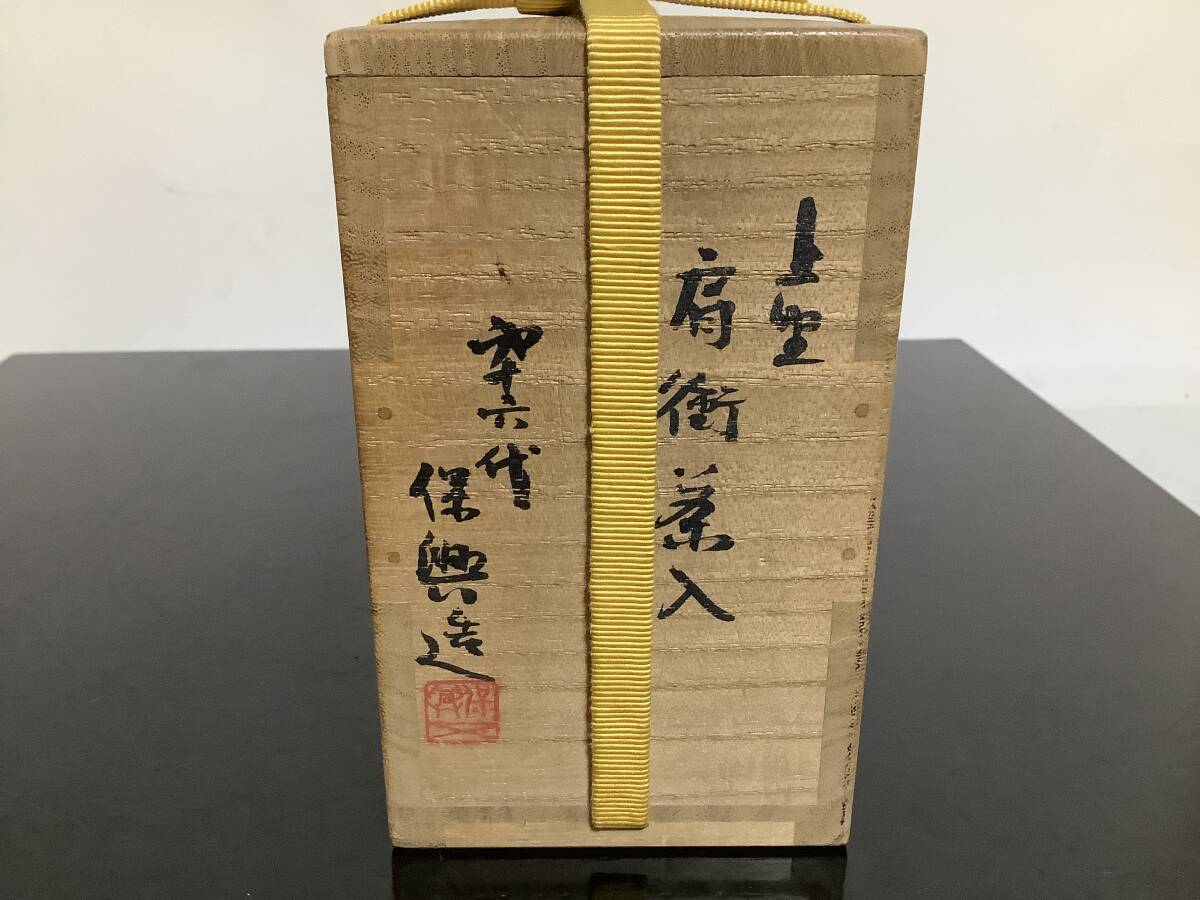 上野
肩衝茶入
十六代
保興造
保興